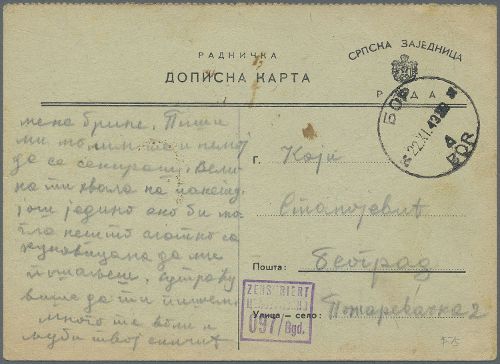 РАДНИЧКА
ДОПИСНА КАРТА
СРПСКА ЗАЈЕДНИЦА
РАДА
БОР
22.XI.43
A
BOR
мена брине. Пиши
ми молим те и немој
да се секираш. Вели
ка ти хвала на пакету,
још једино ако би мо
гла нешто слатко са
да ми
пошаљеш.
више да ти пишем.
много те воли и
љуби твој
Г. Кони
Станојевић
Пошта: Београд
Улица — село: Пожаревачка 2
ZENSURIERT
097/Bgd.